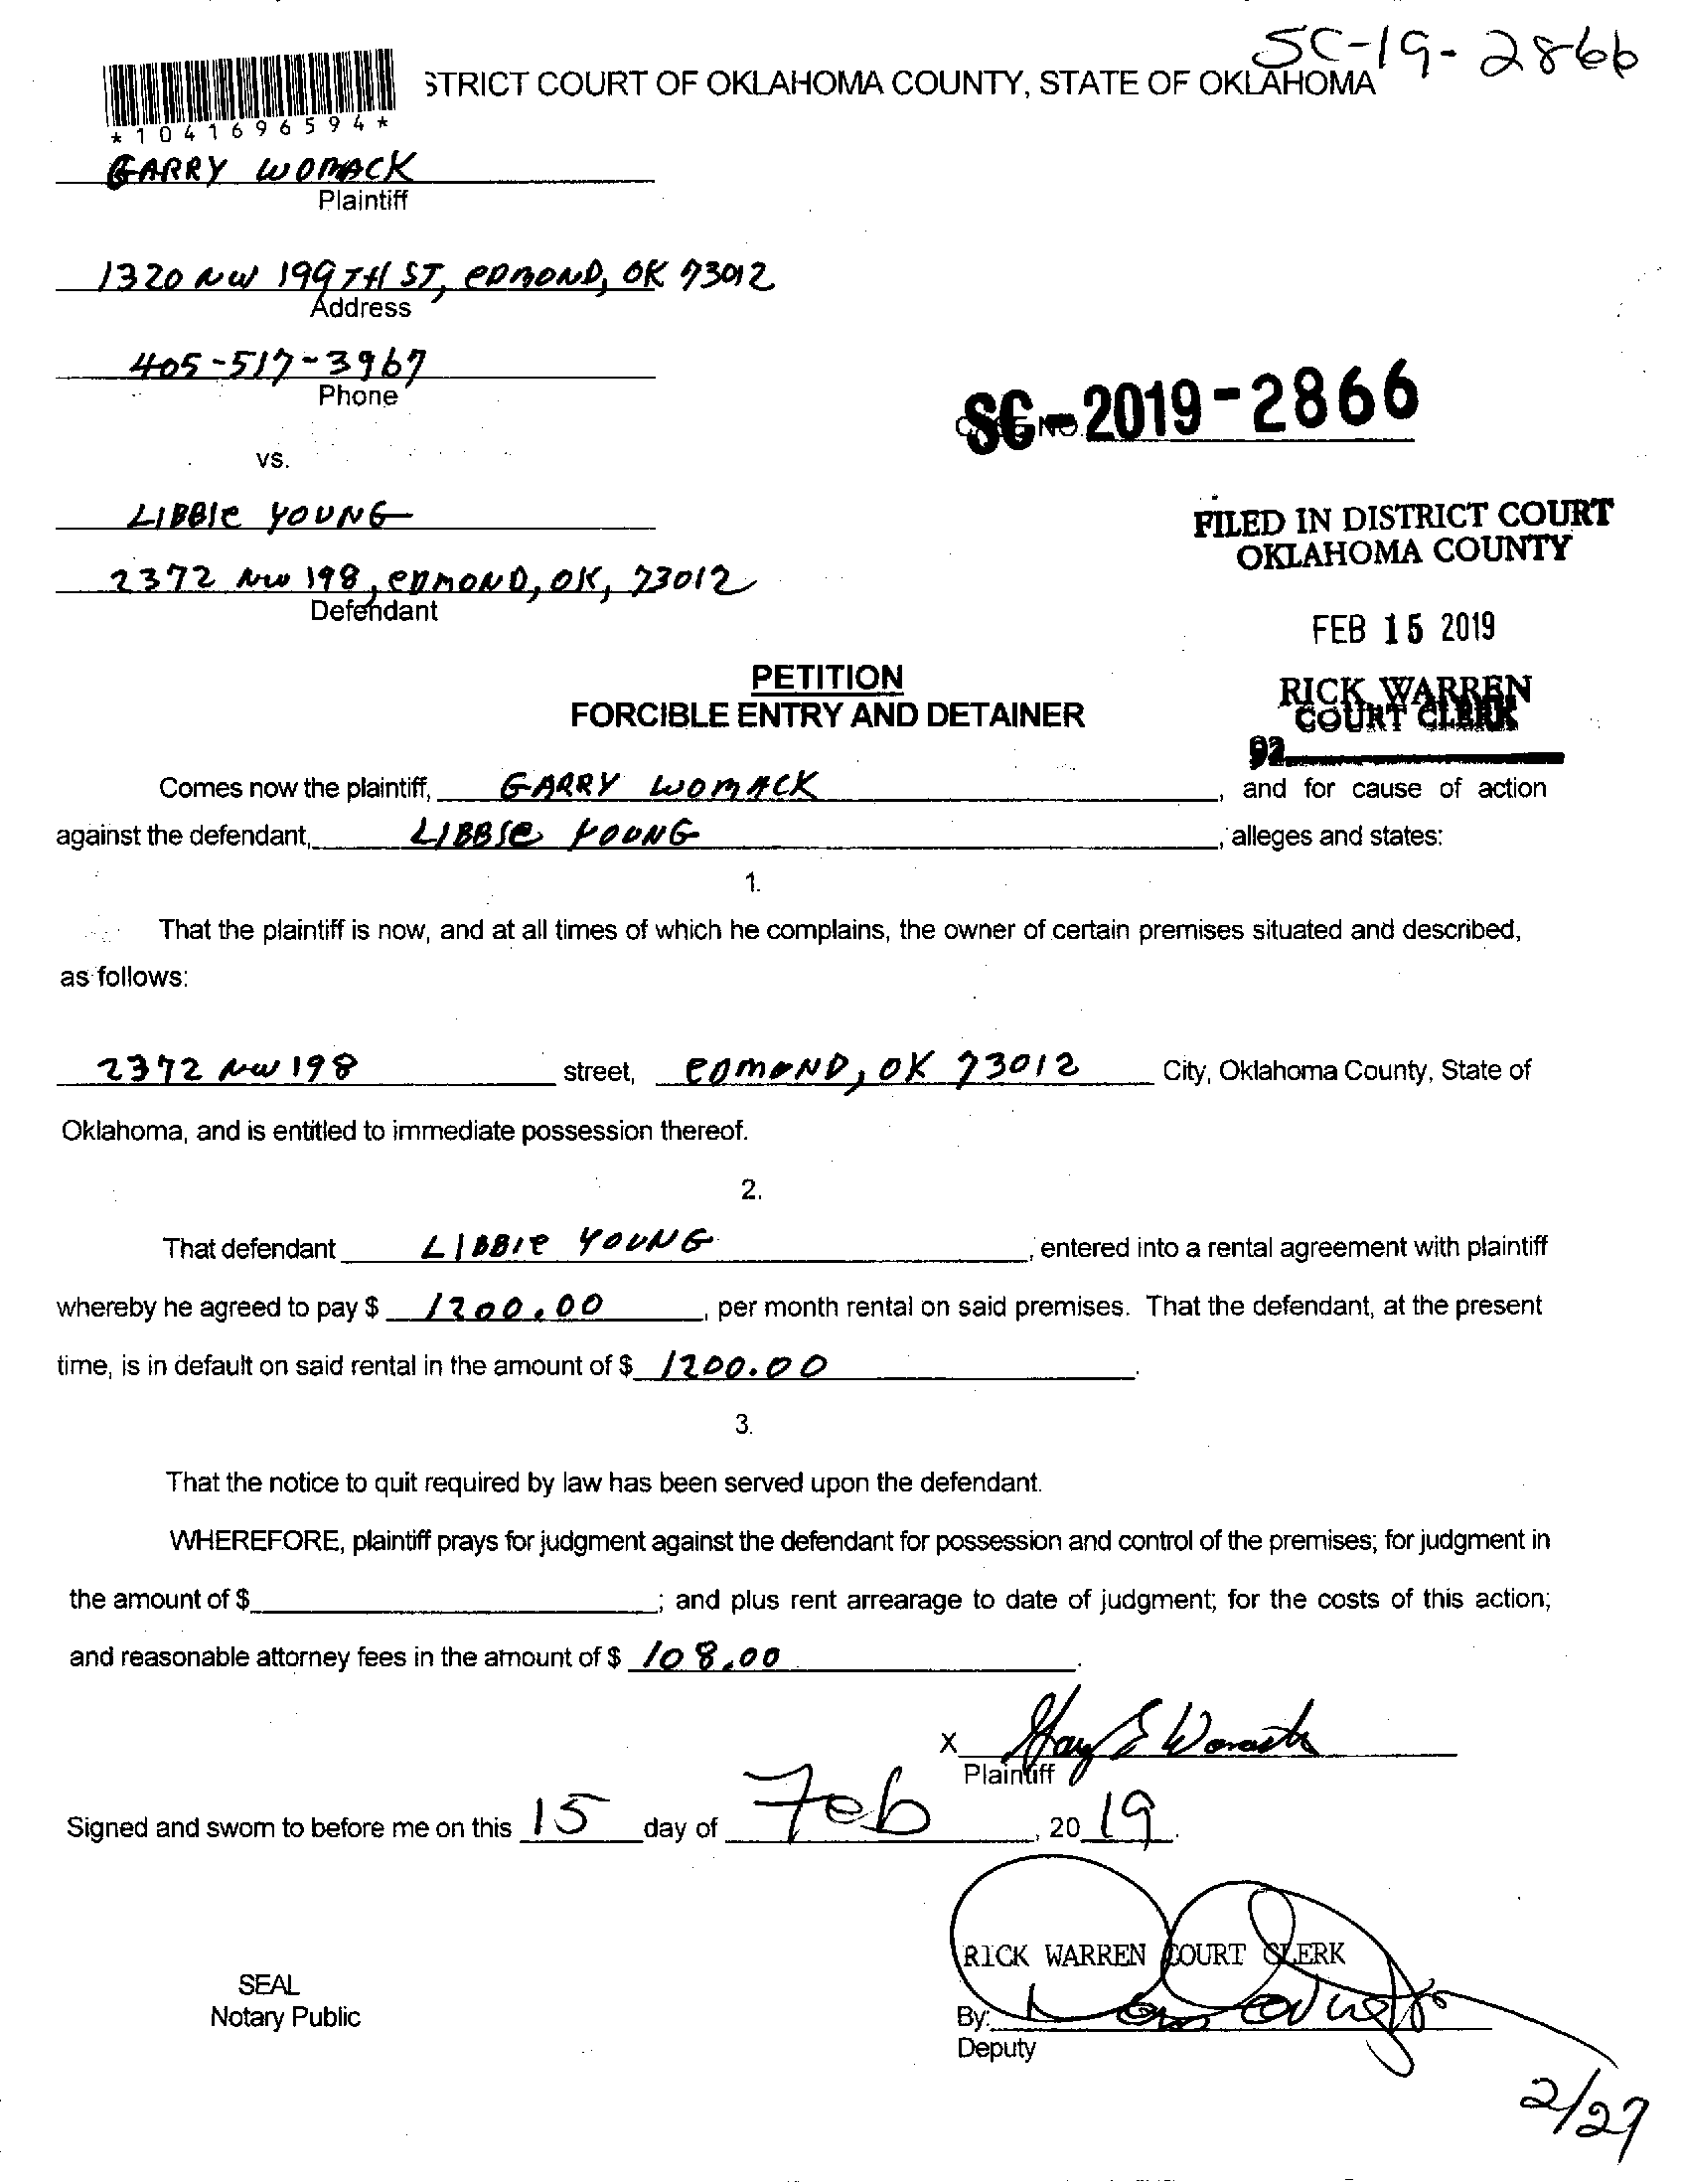 SC-19-2866
STRICT COURT OF OKLAHOMA COUNTY, STATE OF OKLAHOMA
*1041696594*
GARRY WOMACK
Plaintiff
1320 NW 199TH ST, EDMOND, OK 73012
Address
405-517-3967
Phone
SC-2019-2866
vs.
LIBBIE YOUNG
2372 NW 198, EDMOND, OK, 73012
Defendant
FILED IN DISTRICT COURT
OKLAHOMA COUNTY
FEB 15 2019
RICK WARREN
COURT CLERK
92
PETITION
FORCIBLE ENTRY AND DETAINER
Comes now the plaintiff, GARRY WOMACK, and for cause of action
against the defendant, LIBBIE YOUNG, alleges and states:
1.
That the plaintiff is now, and at all times of which he complains, the owner of certain premises situated and described,
as follows:
2372 NW 198 street, EDMOND, OK 73012 City, Oklahoma County, State of
Oklahoma, and is entitled to immediate possession thereof.
2.
That defendant LIBBIE YOUNG, entered into a rental agreement with plaintiff
whereby he agreed to pay $ 1200.00, per month rental on said premises. That the defendant, at the present
time, is in default on said rental in the amount of $ 1200.00.
3.
That the notice to quit required by law has been served upon the defendant.
WHEREFORE, plaintiff prays for judgment against the defendant for possession and control of the premises; for judgment in
the amount of $ ; and plus rent arrearage to date of judgment; for the costs of this action;
and reasonable attorney fees in the amount of $ 108.00.
X Garry E Womack
Plaintiff
Signed and sworn to before me on this 15 day of Feb, 2019.
RICK WARREN COURT CLERK
SEAL
Notary Public
By:
Deputy
2/27